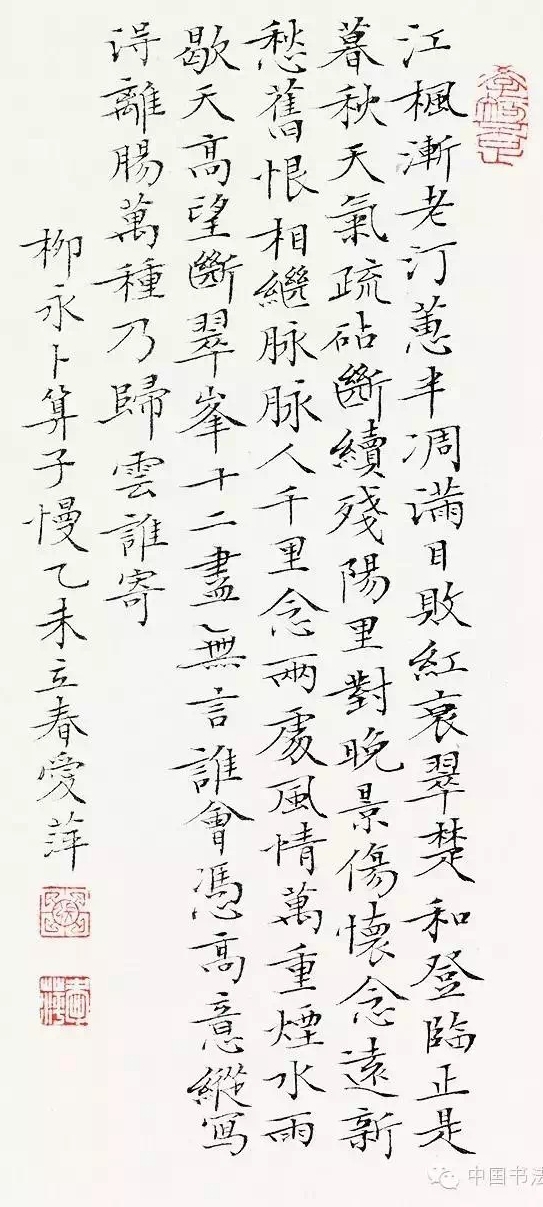 江楓漸老汀蕙半凋滿目敗紅衰翠楚和登臨正是
暮秋天氣疏砧斷續殘陽里對晚景傷懷念遠新
愁舊恨相繼脉脉人千里念兩處風情萬重煙水雨
歇天高望斷翠峯十二盡無言誰會憑高意縱寫
得離腸萬種乃歸雲誰寄
柳永卜算子慢乙未立春愛萍
中国书法